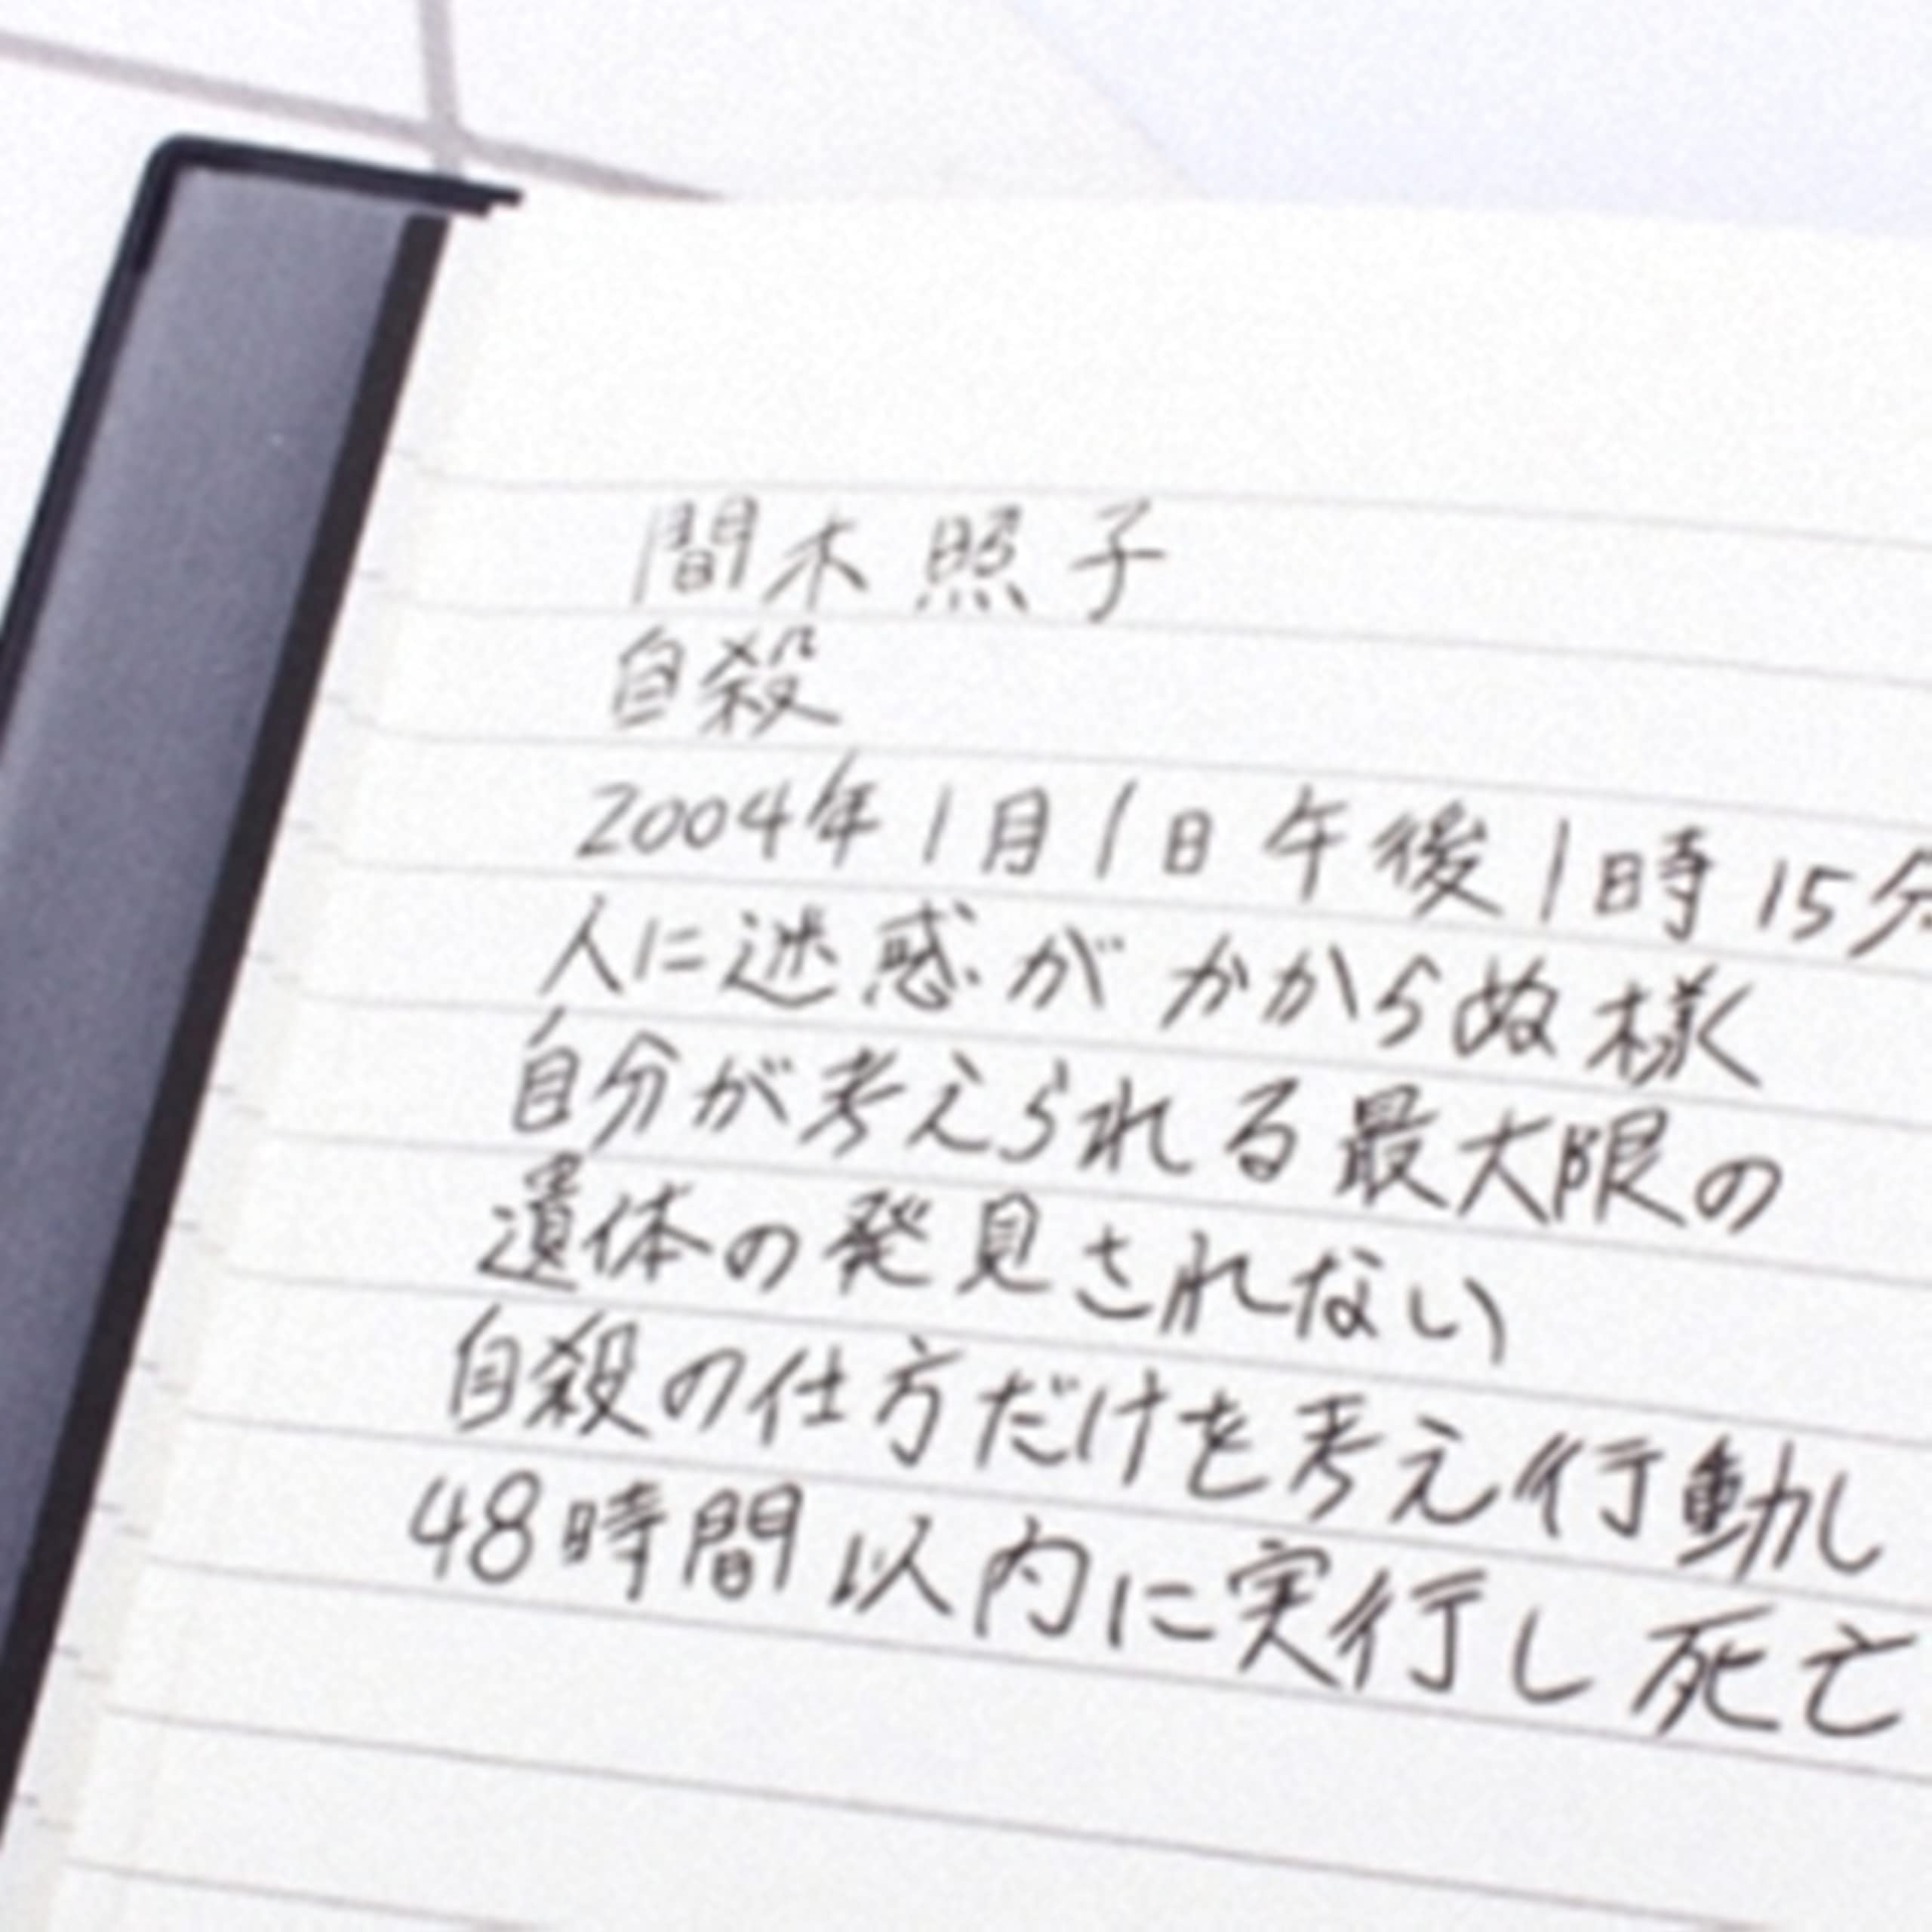 間木照子
自殺
2004年1月1日午後1時15分
人に迷惑がかからぬ様
自分が考えられる最大限の
遺体の発見されない
自殺の仕方だけを考え行動し
48時間以内に実行し死亡